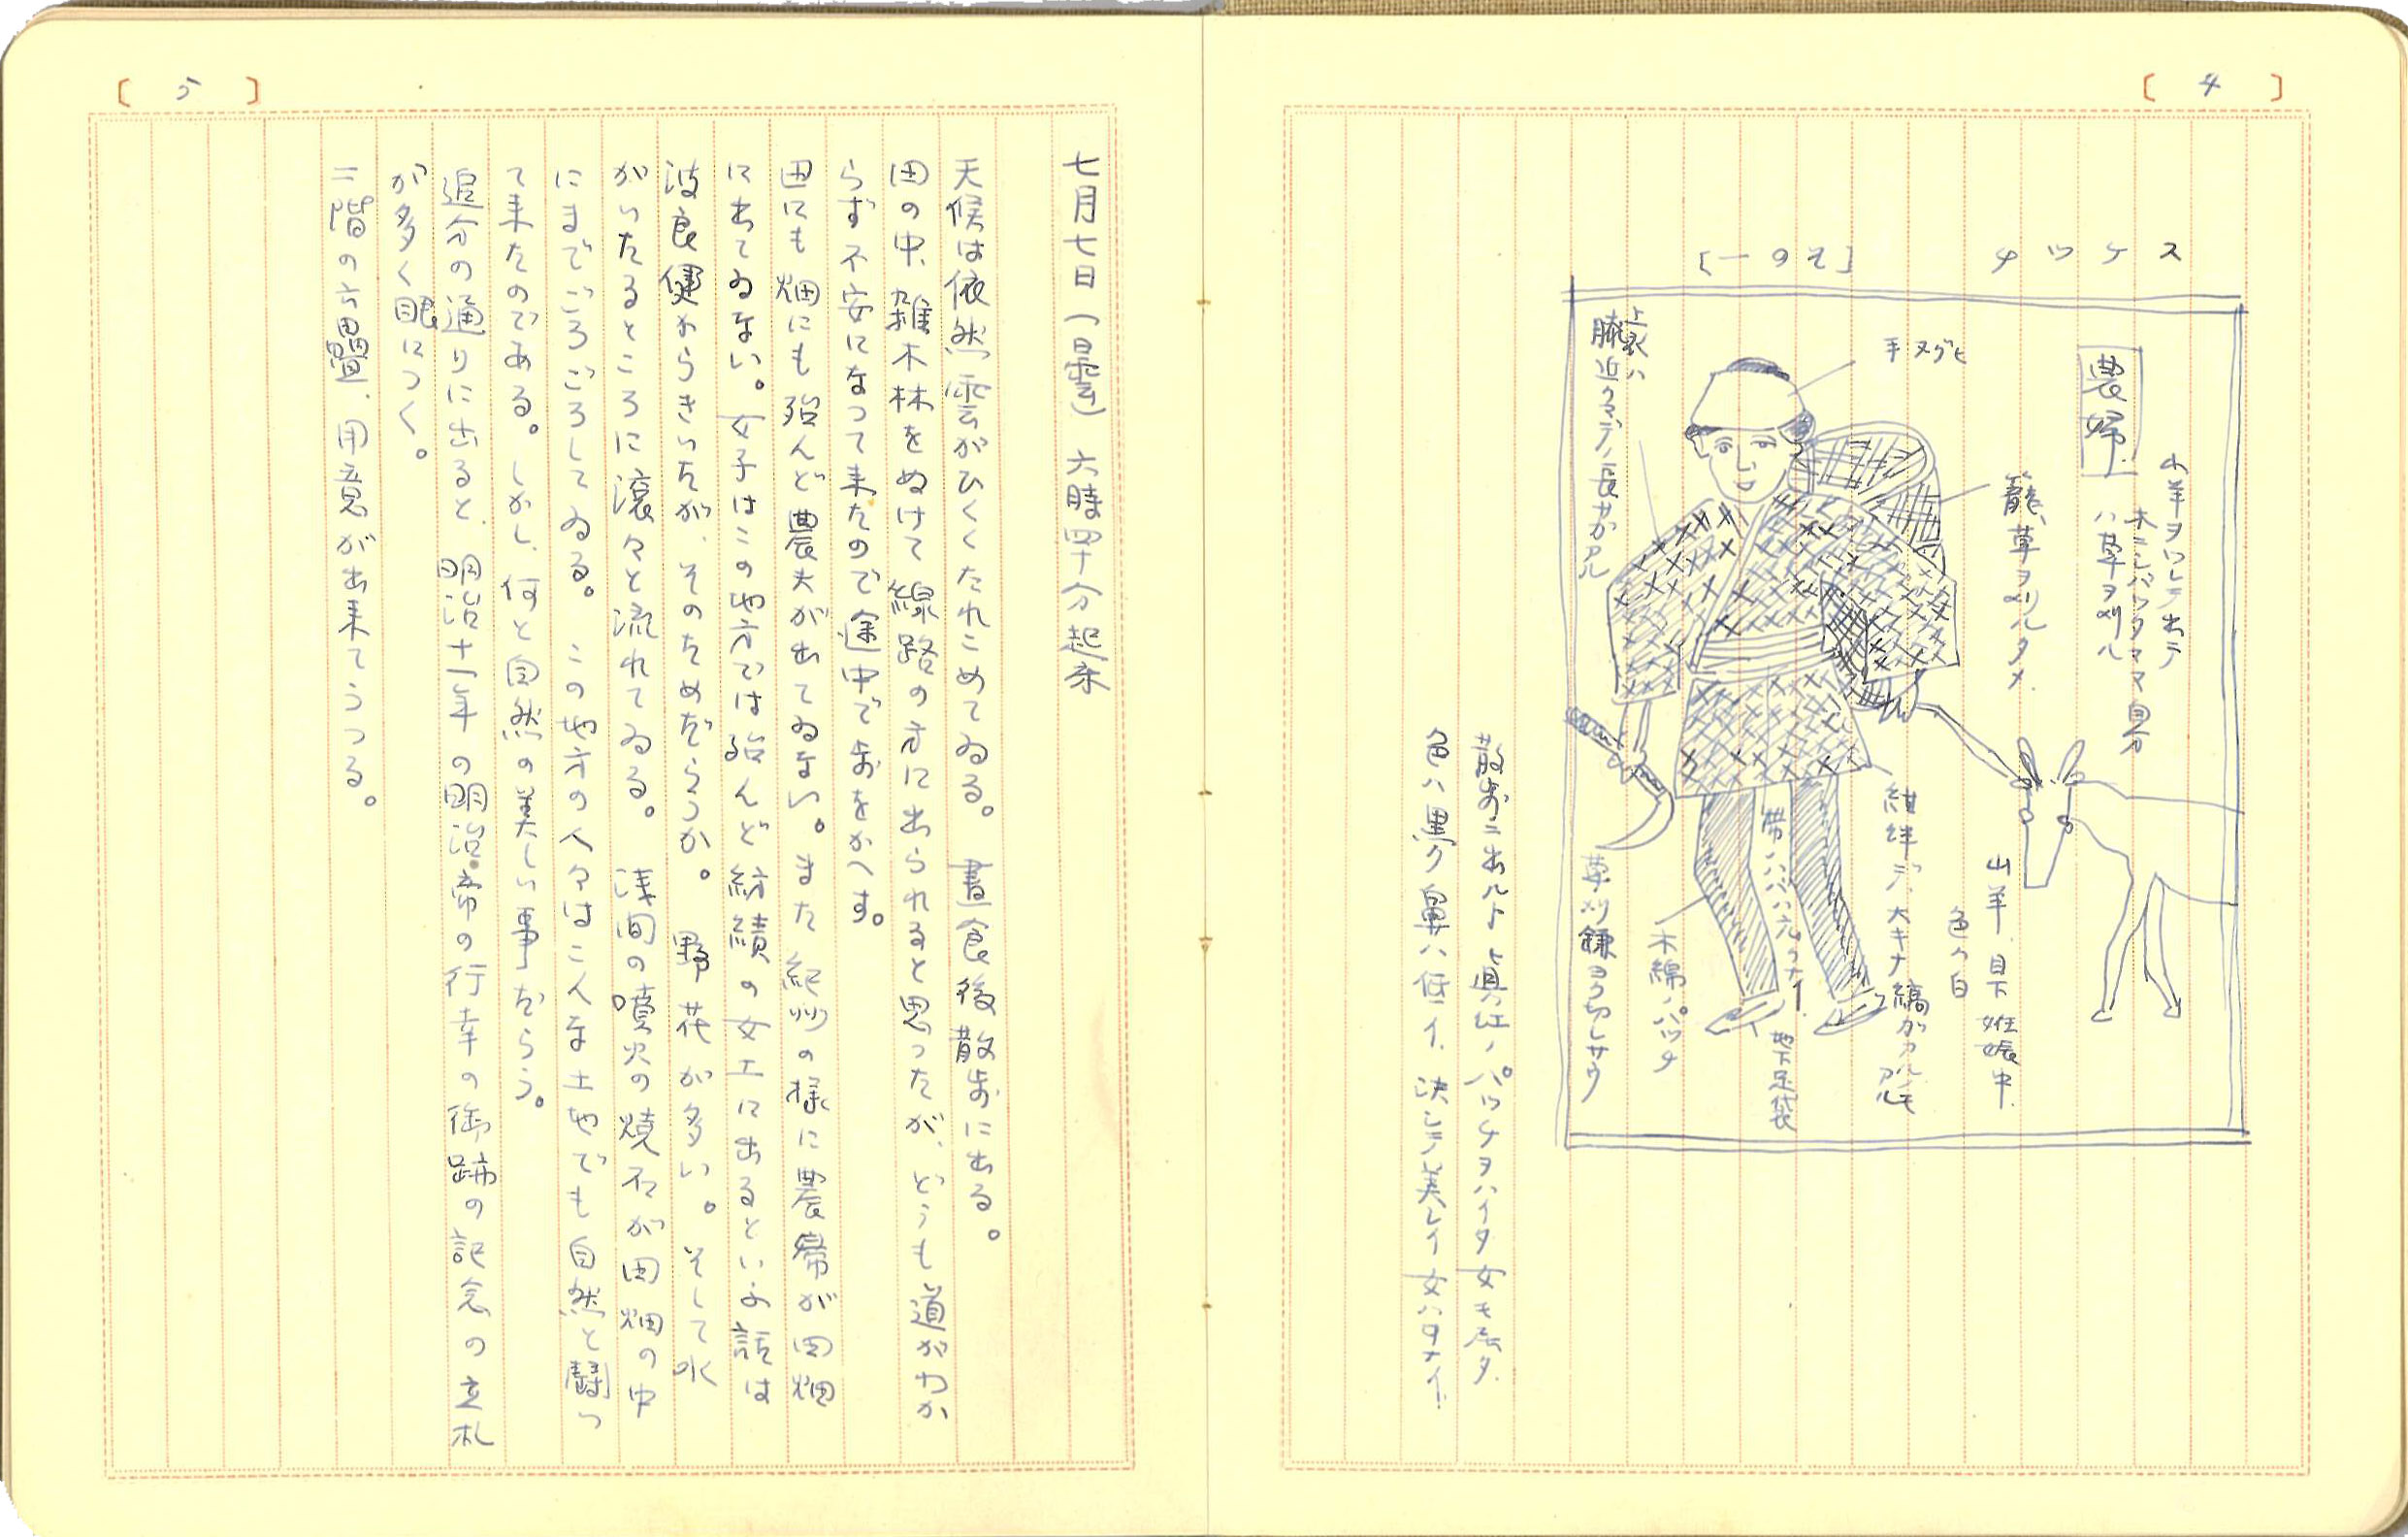 [ 4 ]
スケツチ
[その一]
農婦
山羊ヲツレテ出テ
木ニシバツタママ自分
ハ草ヲ刈ル
手ヌグヒ
籠、草ヲ刈ルタメ
上衣ハ
膝近クマデノ長サガアル
紺絣デ、大キナ縞ガアルノモ
アル
山羊 目下 妊娠中
色ハ白
地下足袋
木綿ノパツチ
草刈鎌ヨク切レサウ
散歩ニ出ルト真紅ノパツチヲハイタ女モ居タ
色ハ黒ク鼻ハ低イ、決シテ美シイ女ハヰナイ
[ 5 ]
七月七日(日曇) 六時四十分起床
天候は依然雲がひくくたれこめてゐる。 昼食後散歩に出る。
田の中、雑木林をぬけて線路の方に出られると思つたが、どうも道がわか
らず不安になつて来たので途中で歩をかへす。
田にも畑にも殆んど農夫が出てゐない。また紀州の様に農婦が田畑
に出てゐない。女子はこの地方では殆んど紡績の女工に出るといふ話は
波良健からきいたが、そのためだらうか。野花が多い。そして水
がいたるところに滾々と流れてゐる。 浅間の噴火の焼石が田畑の中
にまでごろごろしてゐる。 この地方の人々はこんな土地でも自然と闘つ
て来たのである。しかし、何と自然の美しい事だらう。
追分の通りに出ると、明治十一年の明治帝の行幸の御跡の記念の立札
が多く眼につく。
二階の六畳、用意が出来てうつる。